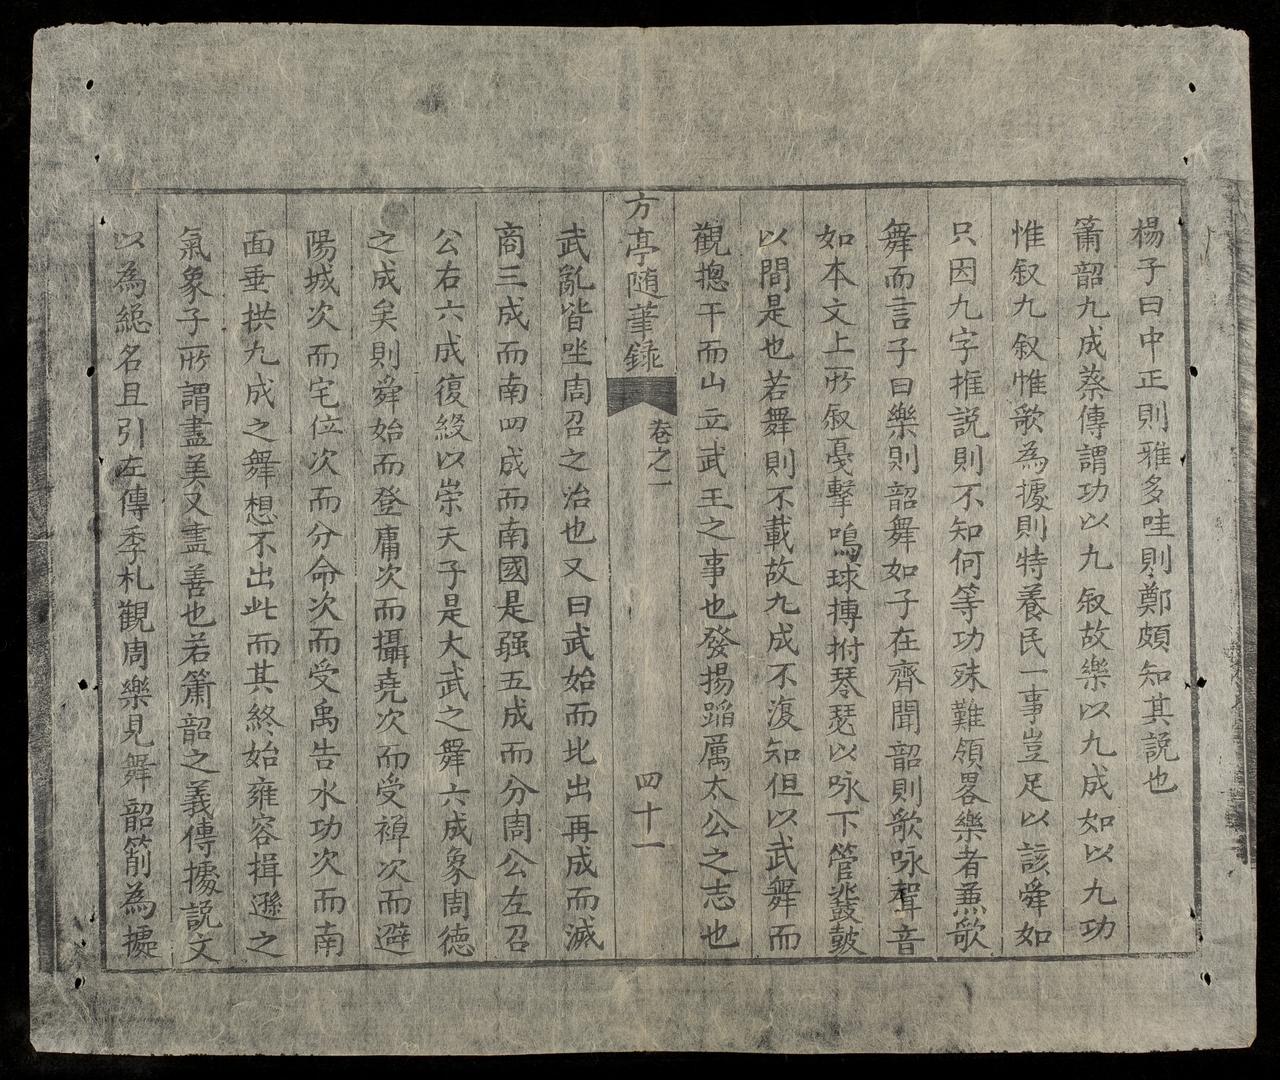 楊子曰中正則雅多哇則鄭頗知其説也
簫韶九成蔡傳謂功以九叙故樂以九成如以九功
惟叙九叙惟歌為據則特養民一事豈足以該舜如
只因九字推説則不知何等功殊難領畧樂者兼歌
舞而言子曰樂則韶舞如子在齊聞韶則歌咏聲音
如本文上所叙戞擊鳴球搏拊琴瑟以咏下管鼗皷
以間是也若舞則不載故九成不復知但以武舞而
觀摠干而山立武王之事也發揚蹈厲太公之志也
方亭随筆録 卷之一 四十一
武亂皆坐周召之治也又曰武始而北出再成而滅
商三成而南四成而南國是疆五成而分周公左召
公右六成復綴以崇天子是大武之舞六成象周德
之成矣則舜始而登庸次而攝堯次而受禪次而避
陽城次而宅位次而分命次而受禹告水功次而南
面垂拱九成之舞想不出此而其終始雍容揖遜之
氣象子所謂盡美又盡善也若簫韶之義傳據説文
以為總名且引左傳季札觀周樂見舞韶箾為據